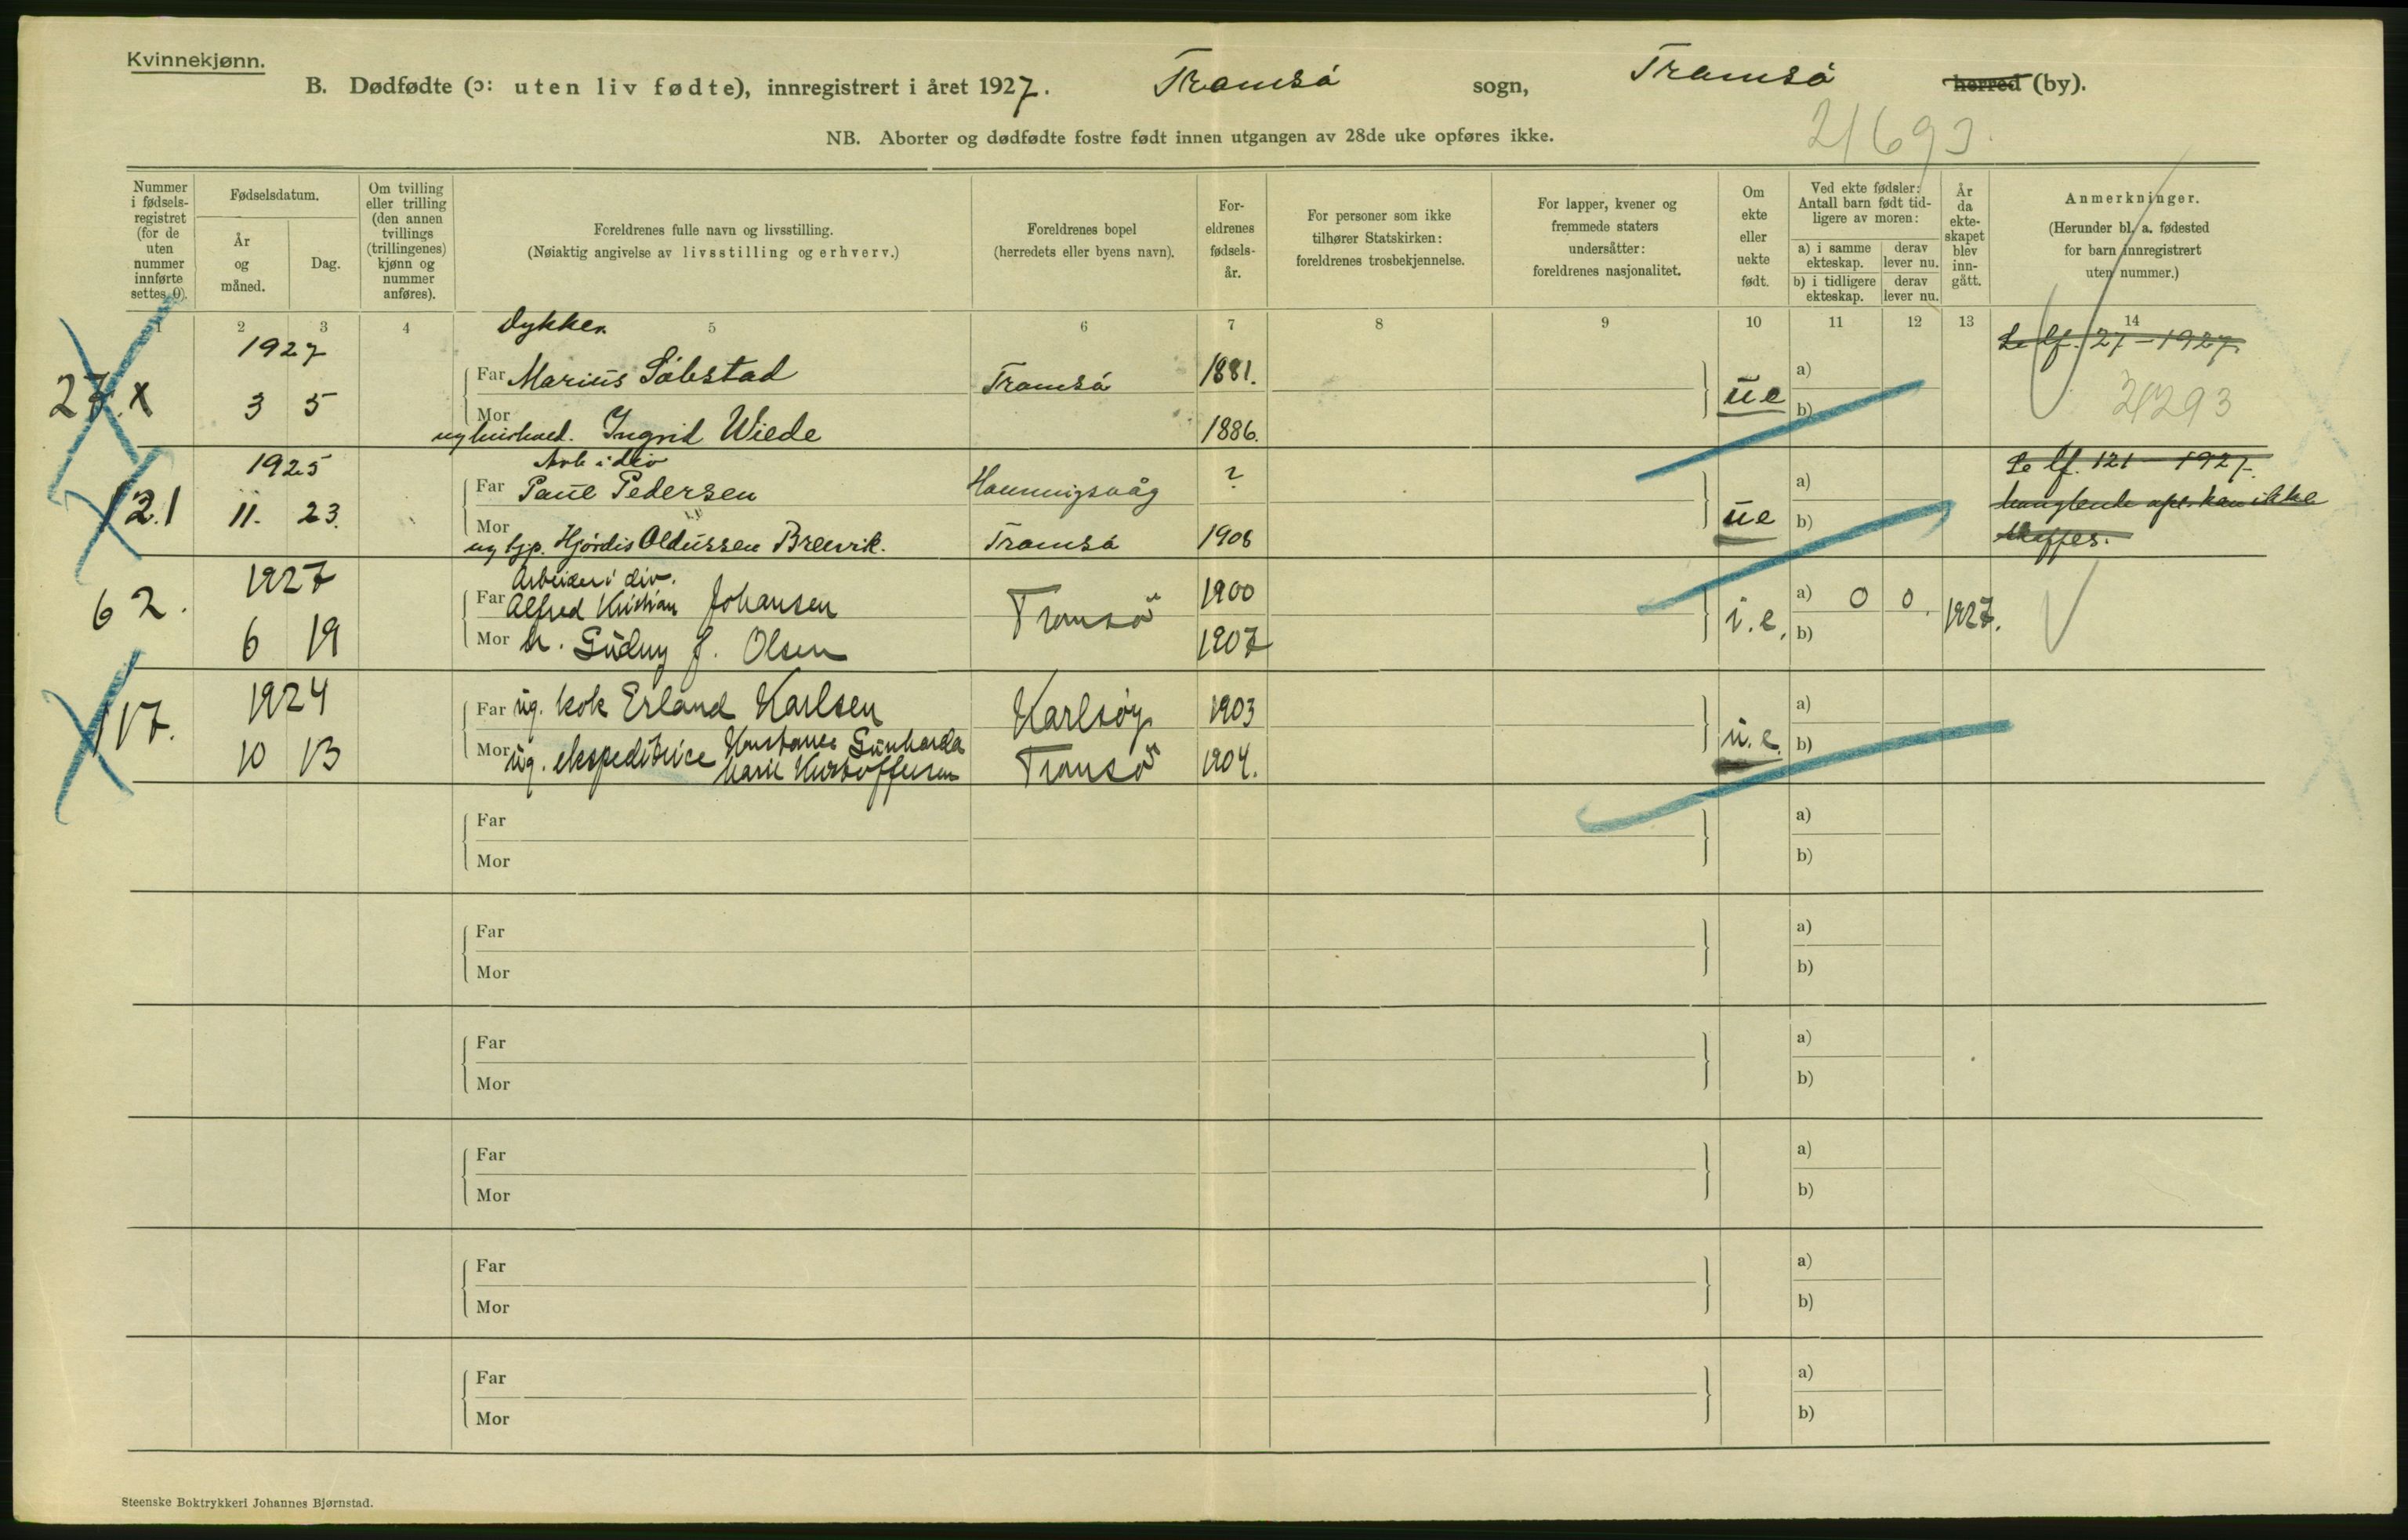 Kvinnekjønn.
B. Dødfødte (ɔ: uten liv fødte), innregistrert i året 1927. Tromsø sogn, Tromsø herred (by).
21693
NB. Aborter og dødfødte fostre født innen utgangen av 28de uke opføres ikke.
Nummer i fødsels-registret (for de uten nummer innførte settes 0).
Fødselsdatum.
År og måned.
Dag.
Om tvilling eller trilling (den annen tvillings (trillingenes) kjønn og nummer anføres).
Foreldrenes fulle navn og livsstilling.
(Nøiaktig angivelse av livsstilling og erhverv.)
Foreldrenes bopel
(herredets eller byens navn).
For-eldrenes fødsels-år.
For personer som ikke tilhører Statskirken: foreldrenes trosbekjennelse.
For lapper, kvener og fremmede staters undersåtter: foreldrenes nasjonalitet.
Om ekte eller uekte født.
Ved ekte fødsler: Antall barn født tid-ligere av moren:
a) i samme ekteskap.
derav lever nu.
b) i tidligere ekteskap.
derav lever nu.
År da ekte-skapet blev inn-gått.
Anmerkninger.
(Herunder bl. a. fødested for barn innregistrert uten nummer.)
1 2 3 4 5 6 7 8 9 10 11 12 13 14
27. x 1927 3 5
Dykker.
Far Marius Søbstad Tromsø 1881.
Mor ug hushold. Ingrid Wiede 1886.
ue a) b)
Se lf. 27 - 1927.
21293
121 1925 11. 23.
Arb i div
Far Paul Pedersen Honningsvåg ?
Mor ug hjp. Hjørdis Oldussen Breivik. Tromsø 1908
ue a) b)
Se lf. 121 - 1927.
manglende opl. kan ikke
skaffes.
62. 1927 6 19
Arbeider i div.
Far Alfred Kristian Johansen Tromsø 1900
Mor h. Gudny J. Olsen 1907
i.e. a) 0 0. b) 1927.
117. 1924 10 13
Far ug. kok Erland Karlsen Karlsøy 1903
Mor ug. ekspeditrice Konstance Gunharda
Marie Kristoffersen Tromsø 1904.
u.e. a) b)
Far a)
Mor b)
Far a)
Mor b)
Far a)
Mor b)
Far a)
Mor b)
Far a)
Mor b)
Far a)
Mor b)
Steenske Boktrykkeri Johannes Bjørnstad.